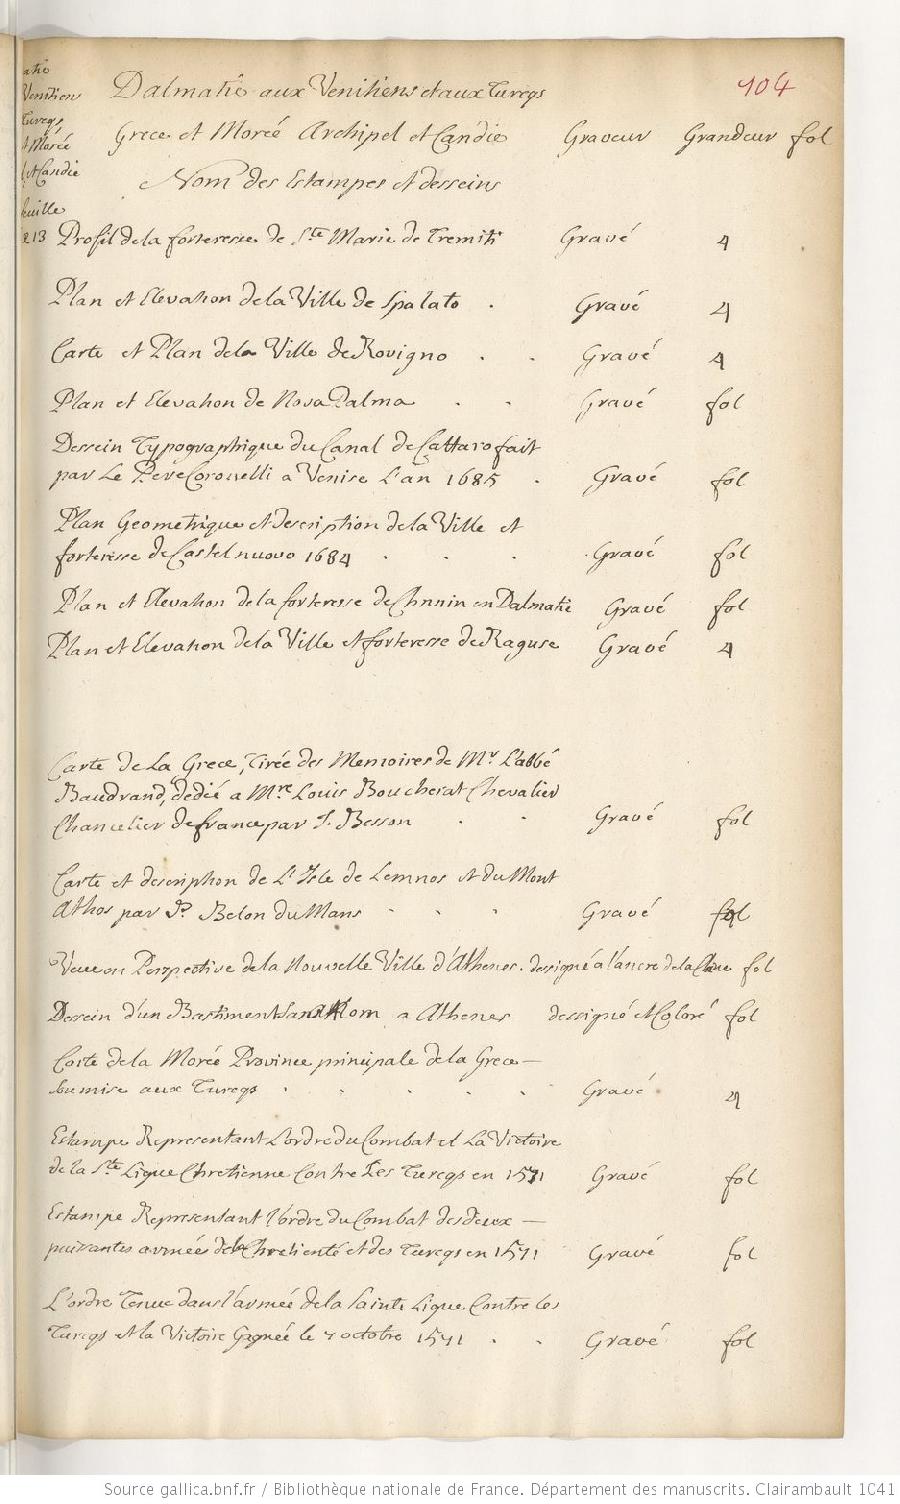 104
Dalmatie aux Venitiens et aux Turcqs
Grece et Moreé Archipel et Candie Graveur Grandeur fol
Nom des Estampes et desseins
atie
Venitien
Turcqs
t Moreé
et Candie
feuille
e 13 Profil de la forteresse de Ste Marie de Tremiti Gravé 4
Plan et Elevation de la Ville de Spalato . Gravé 4
Carte et Plan de la Ville de Rovigno . . Gravé 4
Plan et Elevation de Nova Palma . . Gravé fol
Dessein Typographique du Canal de Cattaro fait
par Le Pere Coronelli a Venise L'an 1685 . Gravé fol
Plan Geometrique et description de la Ville et
forteresse de Castel nuovo 1684 . . . . Gravé fol
Plan et Elevation de la forteresse de Chnnin en Dalmatie Gravé fol
Plan et Elevation de la Ville et forteresse de Raguse Gravé 4
Carte de La Grece, Tirée des Memoires de Mr L'abbé
Baudrand, dedié a Mre Louis Boucherat Chevalier
Chancelier de france par J. Besson . . Gravé fol
Carte et description de L'Isle de Lemnos et du Mont
Athos par P. Belon du Mans . . . Gravé fol
Veue en Perspective de la Nouvelle Ville d'Athenes. dessigné a l'ancre de la Chine fol
Dessein d'un Bastiment sans Nom a Athenes dessigné et Coloré fol
Coste de la Moreé Province principale de la Grece —
sumise aux Turcqs . . . . . Gravé 4
Estampe Representant L'ordre du Combat et La Victoire
de la Ste Ligue Chretienne Contre Les Turcqs en 1571 Gravé fol
Estampe Representant l'ordre du Combat des deux —
puissantes armées de la Chretienté et des Turcqs en 1571 Gravé fol
L'ordre Tenue dans l'armée de la Sainte Ligue Contre les
Turcqs et la Victoire Gagnée le 7 octobre 1571 . . Gravé fol
Source gallica.bnf.fr / Bibliothèque nationale de France. Département des manuscrits. Clairambault 1041